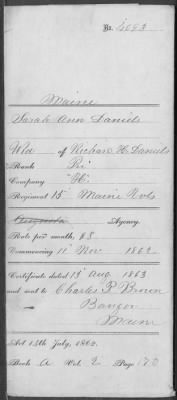 No. 4093
Maine
Sarah Ann Daniels
Wid of Nechars H. Daniels
Rank Pri
Company "H"
Regiment 15 Maine Vols
Augusta Agency.
Rate per month, $8
Commencing 11 Nov 1862
Certificate dated 13 Aug 1863
and sent to Charles P Brown
Bangor
Maine
Act 14th July, 1862.
Book A Vol. 2 Page 170